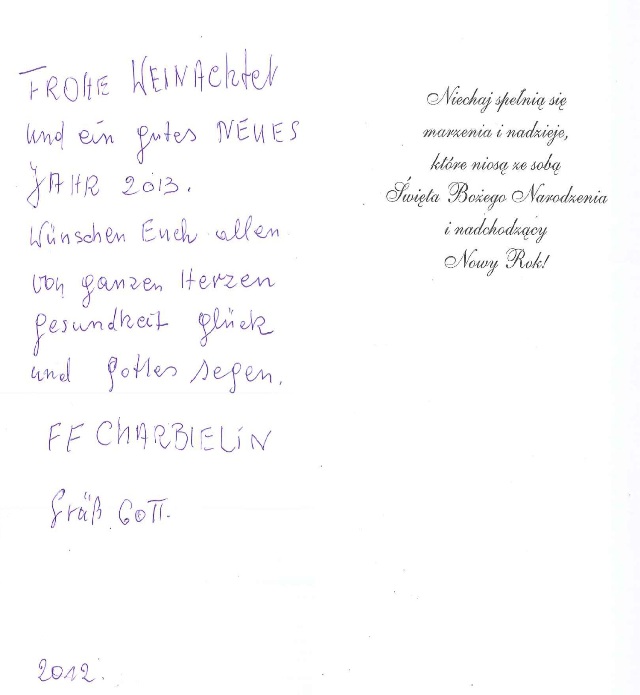 FROHE WEINACHTEN
und ein gutes NEUES
JAHR 2013.
Wünschen Euch allen
von ganzen Herzen
gesundheit glück
und gottes segen.
FF CHARBIELIN
Grüß GOTT.
2012.
Niechaj spełnią się
marzenia i nadzieje,
które niosą ze sobą
Święta Bożego Narodzenia
i nadchodzący
Nowy Rok!